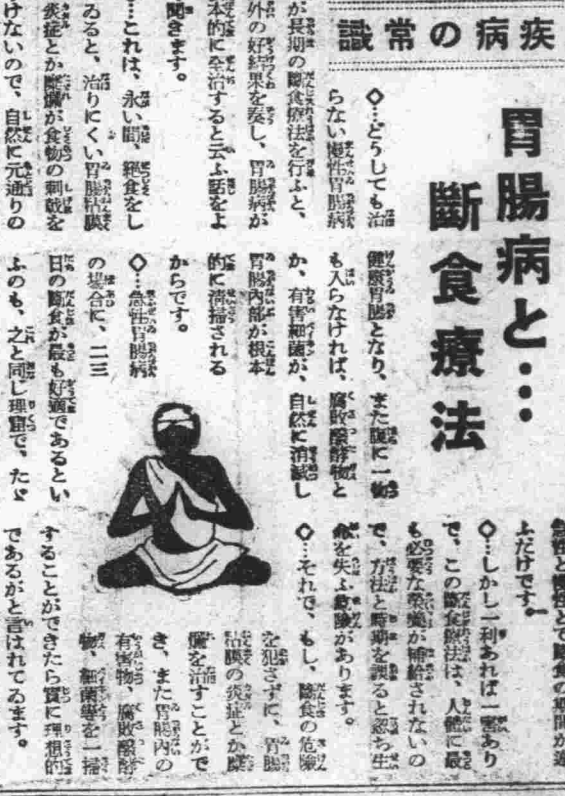 疾病の常識
胃腸病と…
斷食療法
◇…どうしても治
らない慢性胃腸病
が長期の斷食療法を行ふと、
外の好結果を奏し、胃腸病が
本的に全治すると云ふ話をよ
聞きます。
…これは、永い間、絕食をし
ゐると、治りにくい胃腸粘膜
炎症とか糜爛が食物の刺戟を
けないので、自然に元通りの
健康胃腸となり、また腹に一物
も入らなければ、腐敗醱酵物と
か、有害細菌が、自然に消滅し
胃腸內部が根本
的に淸掃される
からです。
◇…急性胃腸病
の場合に、二三
日の斷食が最も好適であるとい
ふのも、之と同じ理窟で、たゞ
急性と慢性とで斷食の期間が違
ふだけです。
◇…しかし一利あれば一害あり
で、この斷食療法は、人體に最
も必要な榮養が補給されないの
で、方法と時期を誤ると忽ち生
命を失ふ危險があります。
◇…それで、もし、斷食の危險
を犯さずに、胃腸
粘膜の炎症とか糜
爛を治すことがで
き、また胃腸內の
有害物、腐敗醱酵
物、細菌等を一掃
することができたら實に理想的
であるがと言はれてゐます。